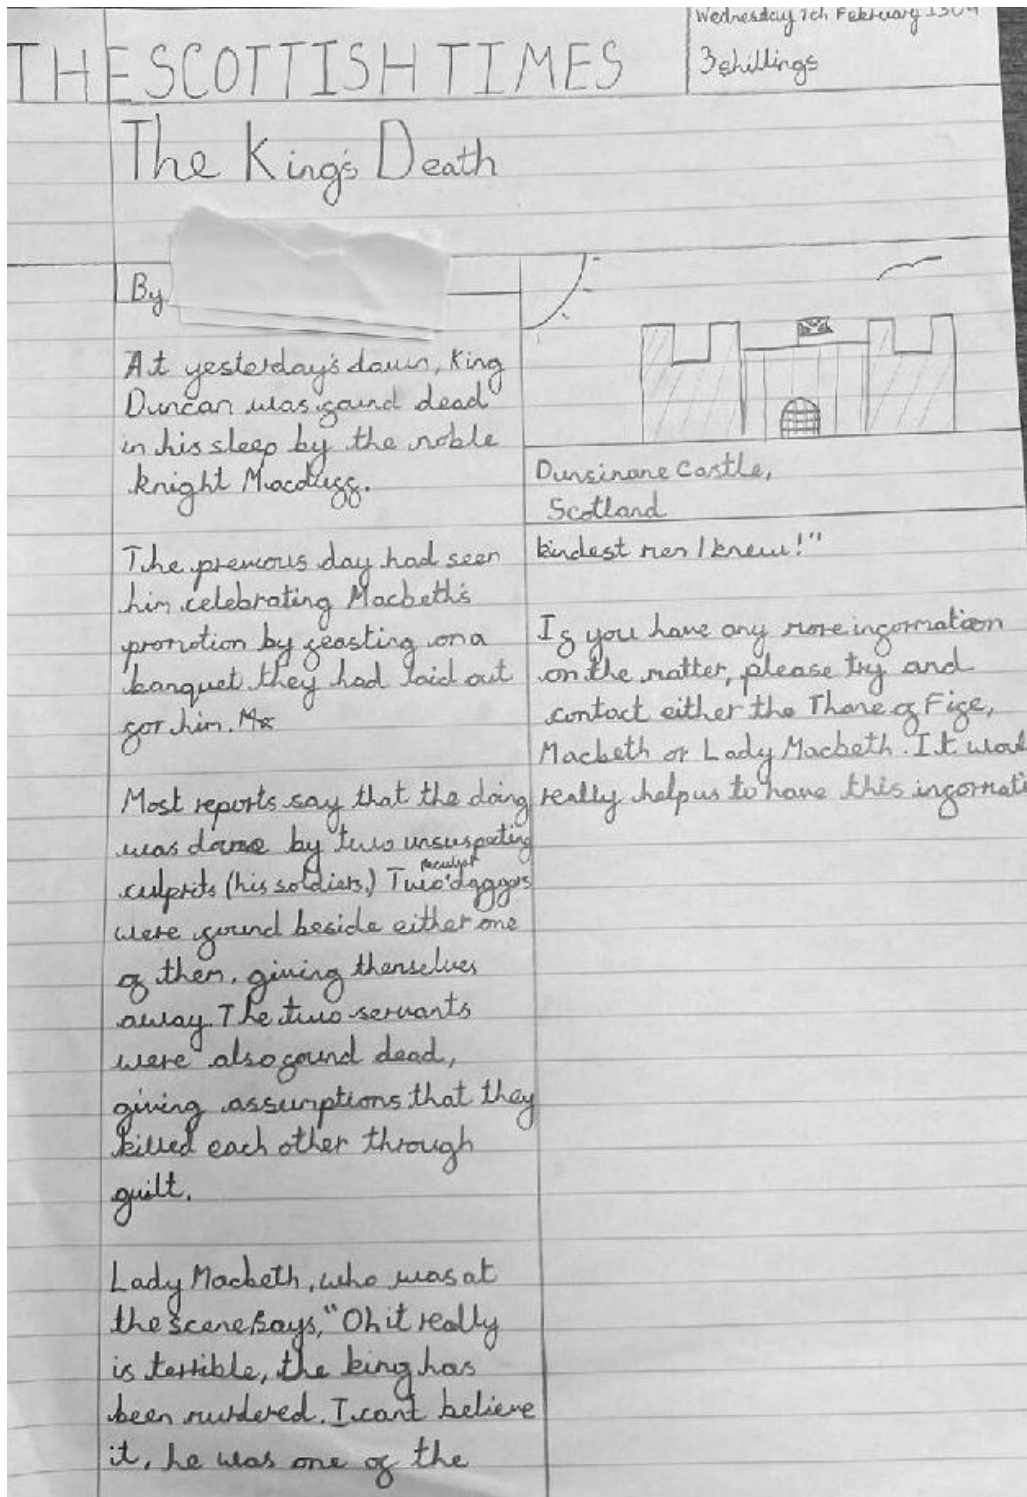 THE SCOTTISH TIMES
Wednesday 7th February
3 shillings
The King's Death
By
At yesterday's dawn, King
Duncan was found dead
in his sleep by the noble
knight Macduff.
The previous day had seen
him celebrating Macbeth's
promotion by feasting on a
banquet they had laid out
for him. Ma
Most reports say that the doing
was done by two unsuspecting
culprits (his soldiers.) Two peculiar daggers
were found beside either one
of them, giving themselves
away. The two servants
were also found dead,
giving assumptions that they
killed each other through
guilt.
Lady Macbeth, who was at
the scene says, "Oh it really
is terrible, the king has
been murdered. I cant believe
it, he was one of the
Dunsinane Castle,
Scotland
kindest men I knew!"
If you have any more information
on the matter, please try and
contact either the Thane of Fife,
Macbeth or Lady Macbeth. It woul
really help us to have this informati